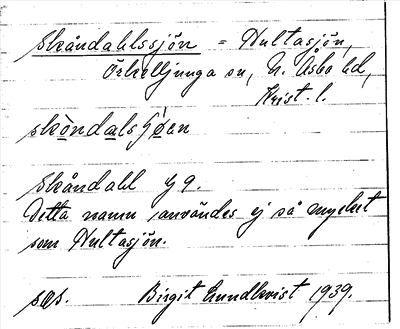 Skåndahlssjön = Hultasjön,
Örkelljunga sn, N. Åsbo hd,
Krist. l.
skòndalsʃø̀en
Skåndahl 49.
Detta namn användes ej så mycket
som Hultasjön.
Birgit Lundkvist 1939.